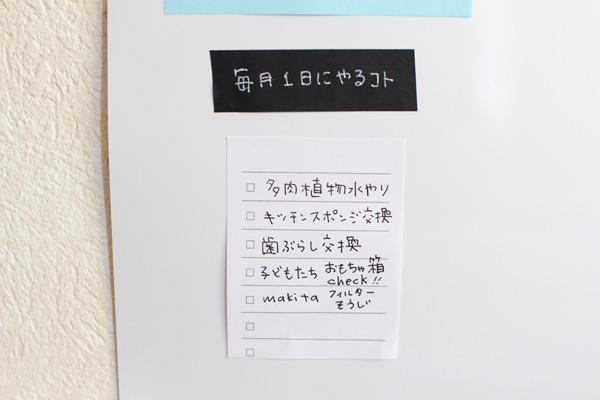 毎月1日にやるコト
多肉植物水やり
キッチンスポンジ交換
歯ぶらし交換
子どもたち おもちゃ箱
check!!
makita フィルター
そうじ